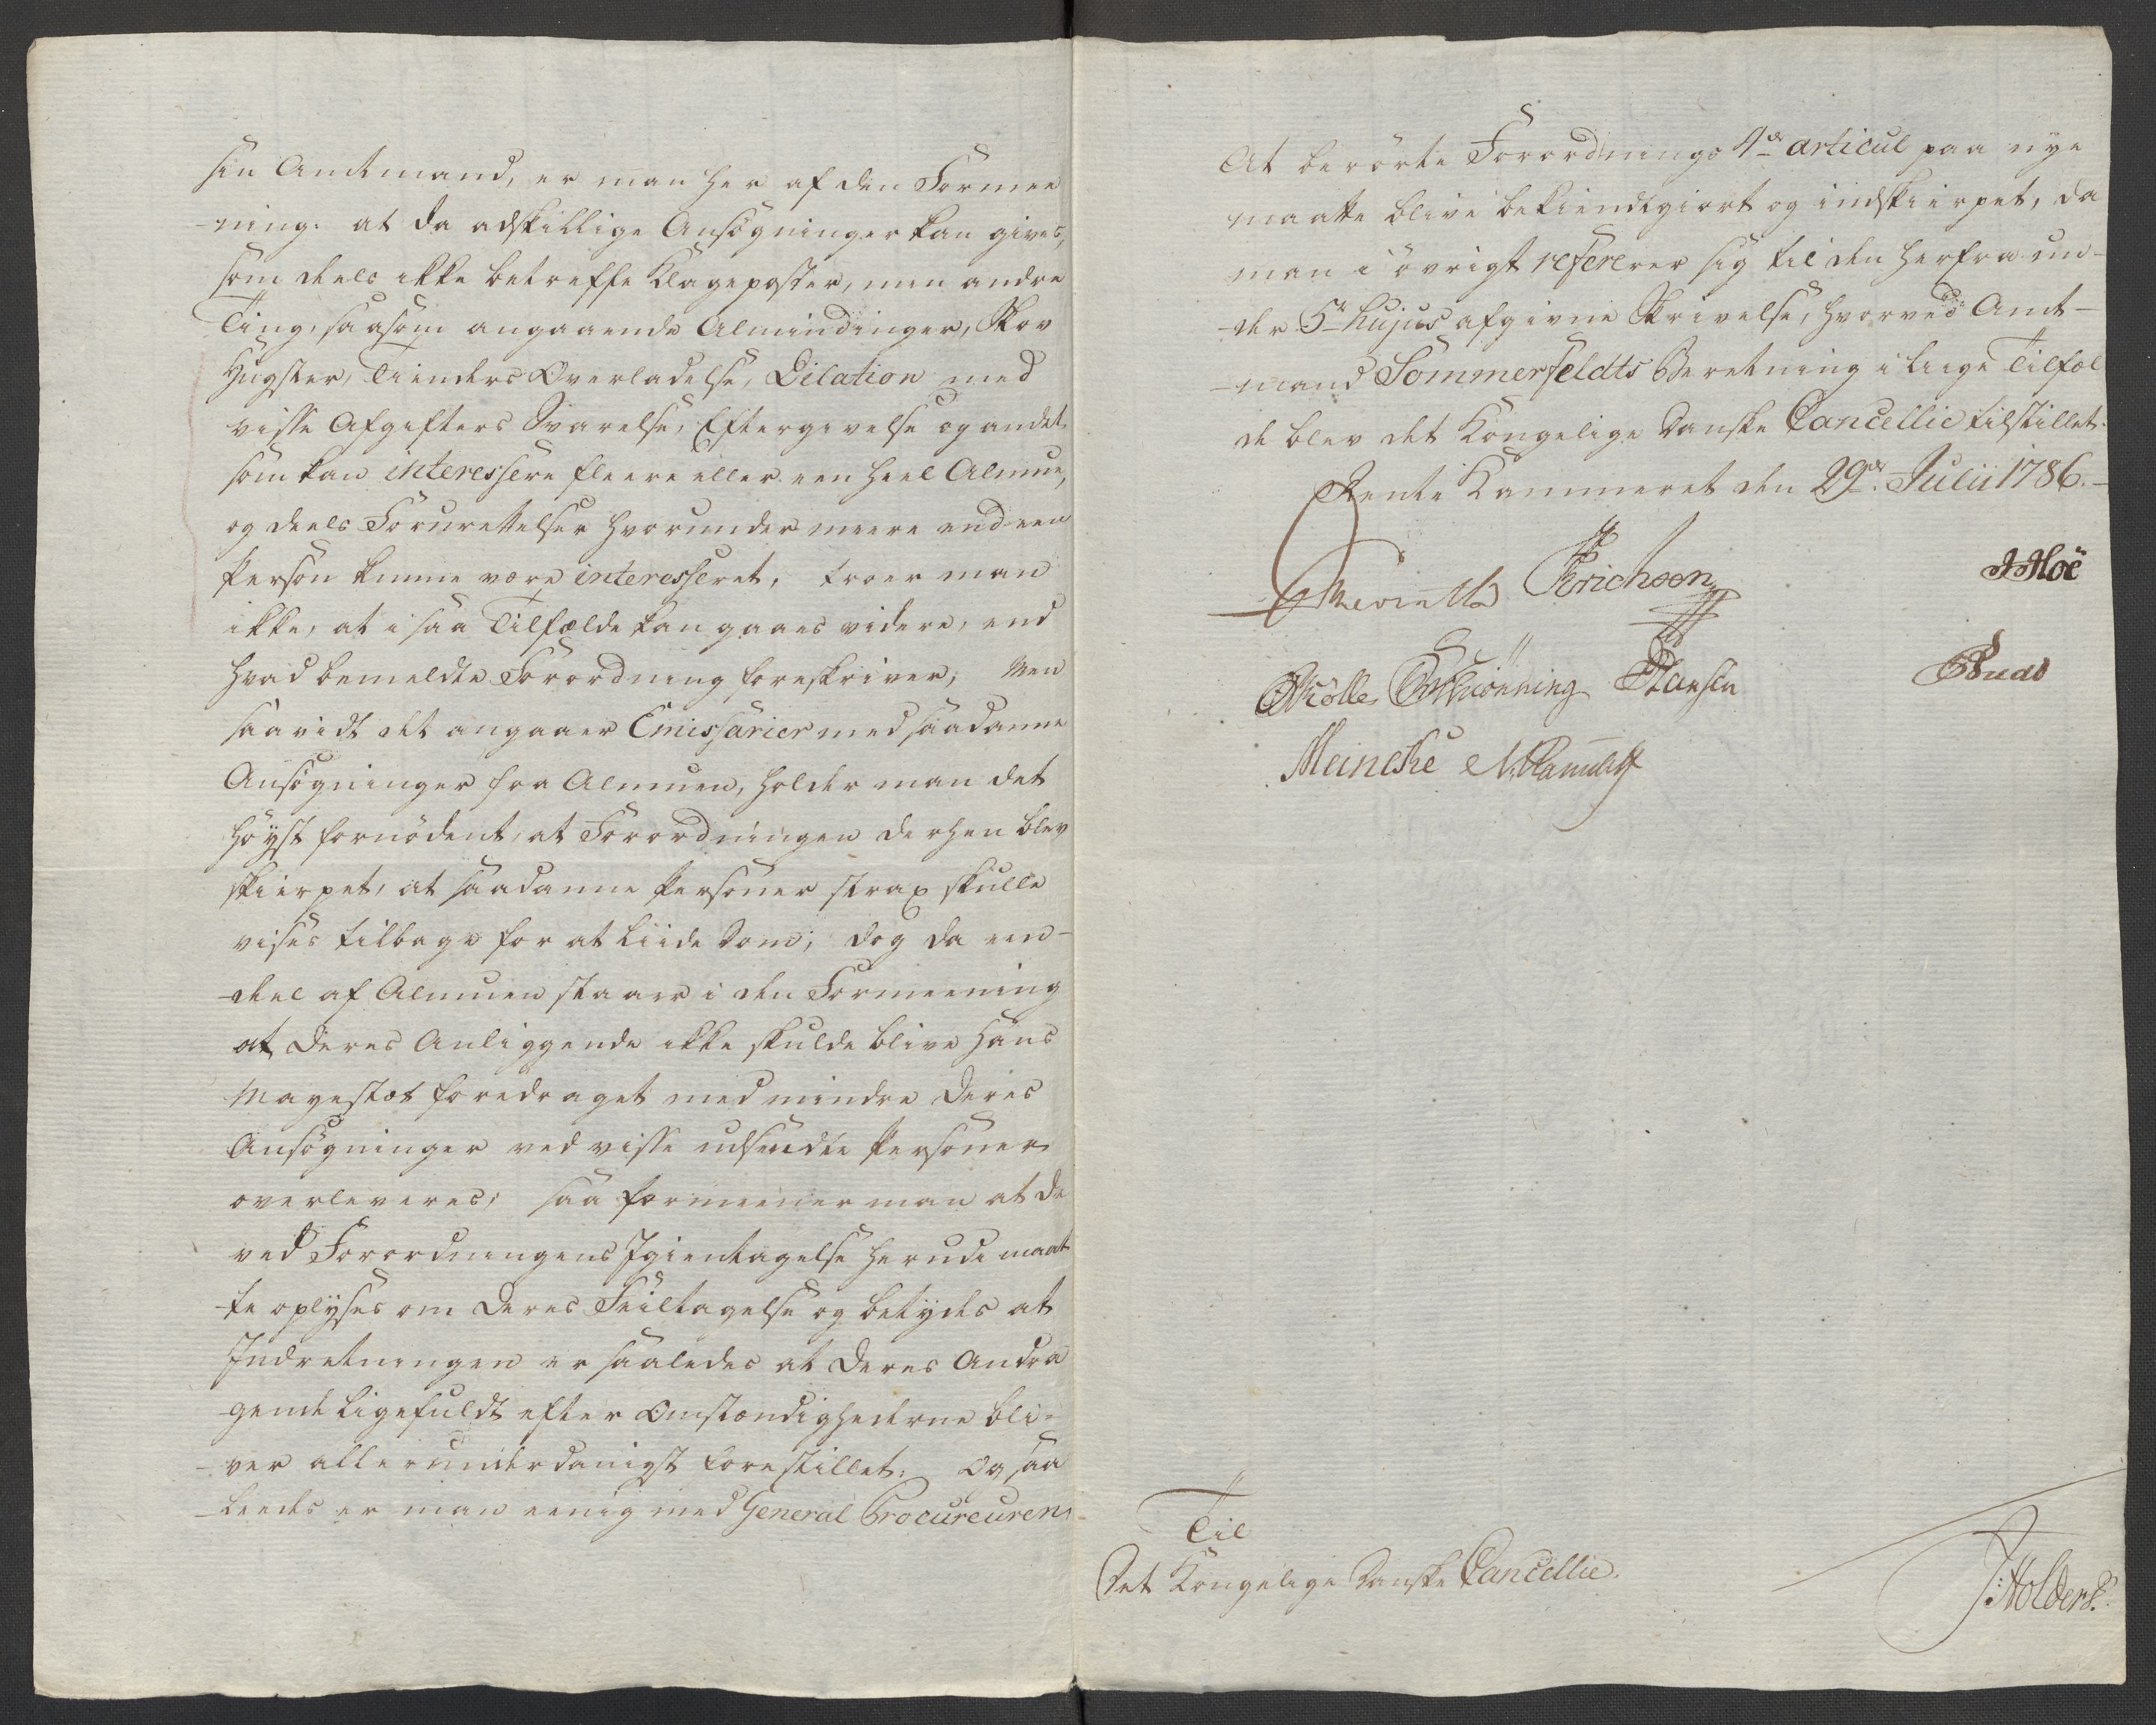 sin Amtmand, er man her af den Formee
-ning: at da adskillige Ansøgninger kan gives,
som deels ikke betreffe Klageposter, men andre
Ting, saasom angaaende Almindinger, Skov
Hugster, Tienders Overladelse, Dilation med
visse Afgifters Svarelse, Eftergivelse og andet
som kan interessere fleere eller een heel Almue,
og deels Forurettelser hvorunder meere end een
Person kunne være interesseret, troer man
ikke, at i saa Tilfælde kan gaaes videre, end
hvad bemeldte Forordning foreskriver; Men
saavidt det angaaer Emissarier med saadanne
Ansøgninger fra Almuen, holder man det
høyst fornødent, at Forordningen derhen blev
skierpet, at saadanne Personer strax skulle
vises tilbage for at liide Dom; dog da een-
-deel af Almuen staaer i den Formeening
at deres Anliggende ikke skulde blive Hans
Mayestæt foredraget med mindre deres
Ansøgninger ved visse udsendte Personer
overleveres; saa formeener man at de
ved Forordningens Igientagelse herudi maat
-te oplyses om deres Feiltagelse og betydes at
Indretningen er saaledes at deres Andra
-gende ligefuldt efter Omstændighederne bli-
-ver allerunderdanigst forestillet; Og saa
-leedes er man eenig med General Procureuren,
At berørte Forordnings 1de articul paa nye
maatte blive bekiendtgiort og indskierpet, da
man i øvrigt refererer sig til den herfra un-
-der 5te hujus afgivne Skrivelse, hvorved Amt-
-mand Sommerfeldts Beretning i liige Tilfæl
de blev det Kongelige Danske Cancellie tilstillet.
Rente Kammeret den 29de Julii 1786.-
Erichsen JMoë
Hansen
Meincke
Til
Det Kongelige Danske Cancellie.
JHolders.